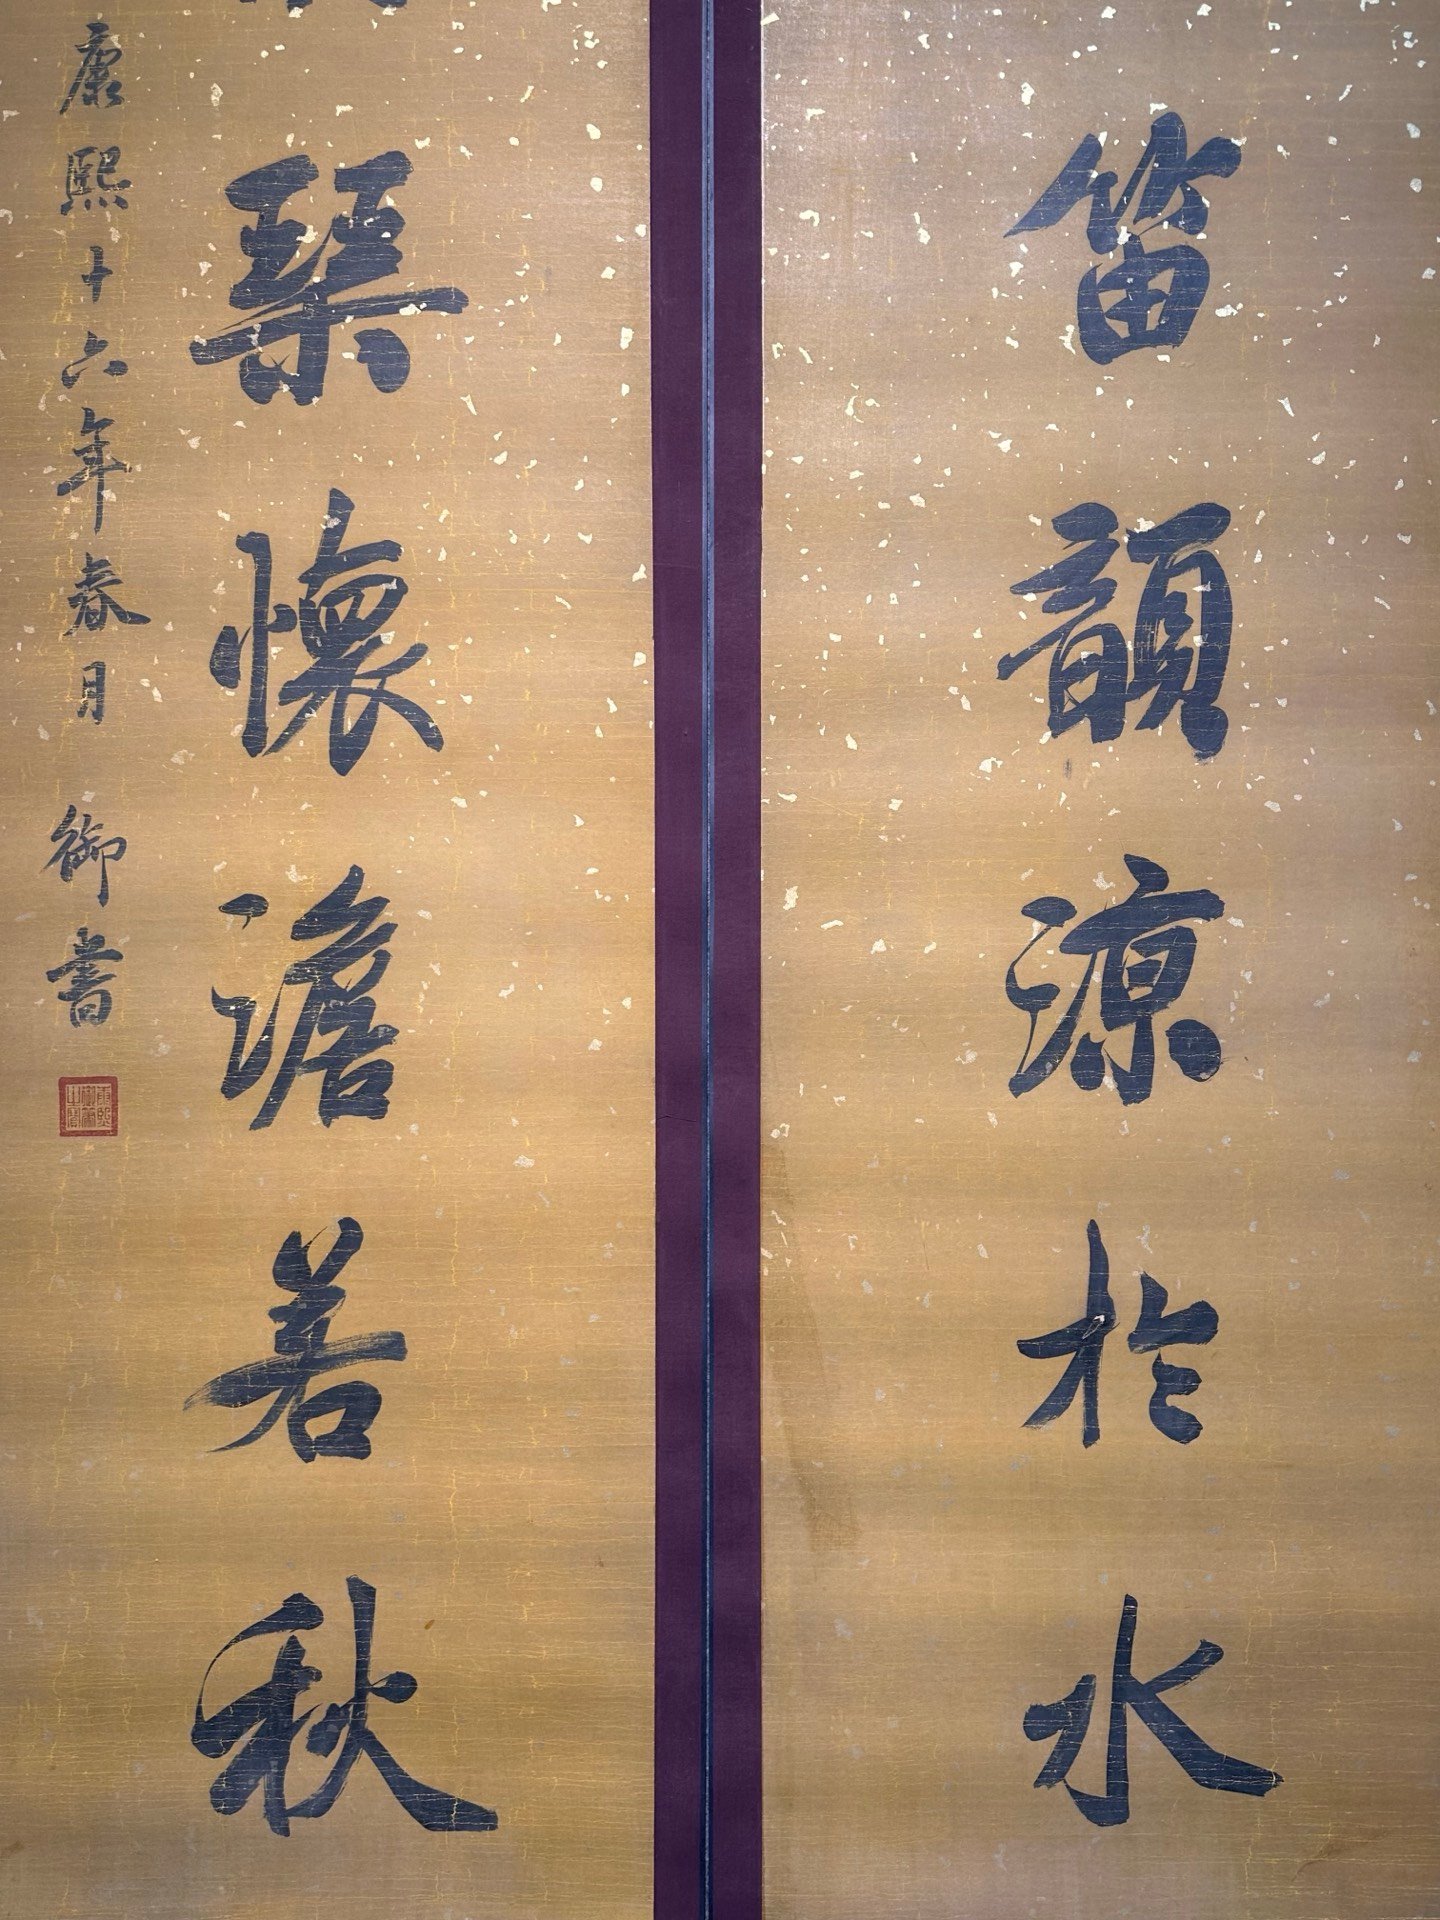 笛韻涼於水
琹懷澹若秋
康熙十六年春月 御書
康熙御筆之寶